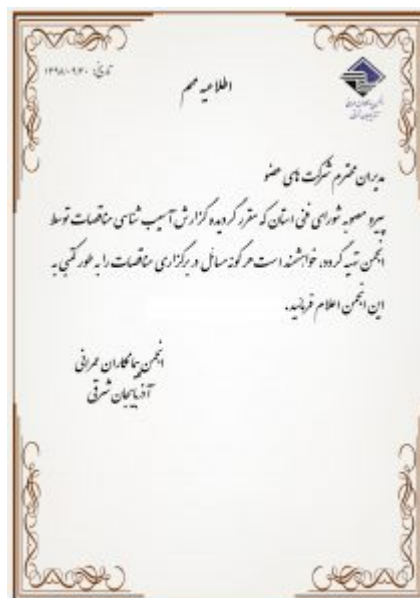 تاریخ: ۱۳۹۸/۰۹/۳۰
اطلاعیه مهم
مدیران محترم شرکت های عضو
پیرو مصوبه شورای فنی استان که مقرر گردیده گزارش آسیب شناسی مناقصات توسط
انجمن تهیه گردد، خواهشمند است هر گونه مسائل در برگزاری مناقصات را به طور کتبی به
این انجمن اعلام فرمائید.
انجمن پیمانکاران عمرانی
آذربایجان شرقی